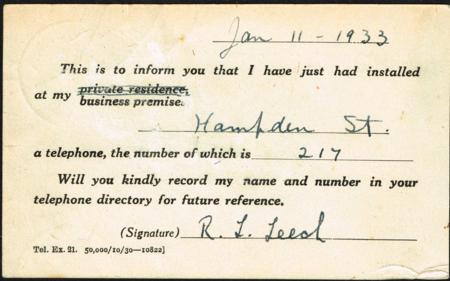 Jan 11 - 1933
This is to inform you that I have just had installed
at my private residence,
business premise.
Hampden St.
a telephone, the number of which is 217
Will you kindly record my name and number in your
telephone directory for future reference.
(Signature) R. L. Leech
Tel. Ex. 21. 50,000/10/30—10822]